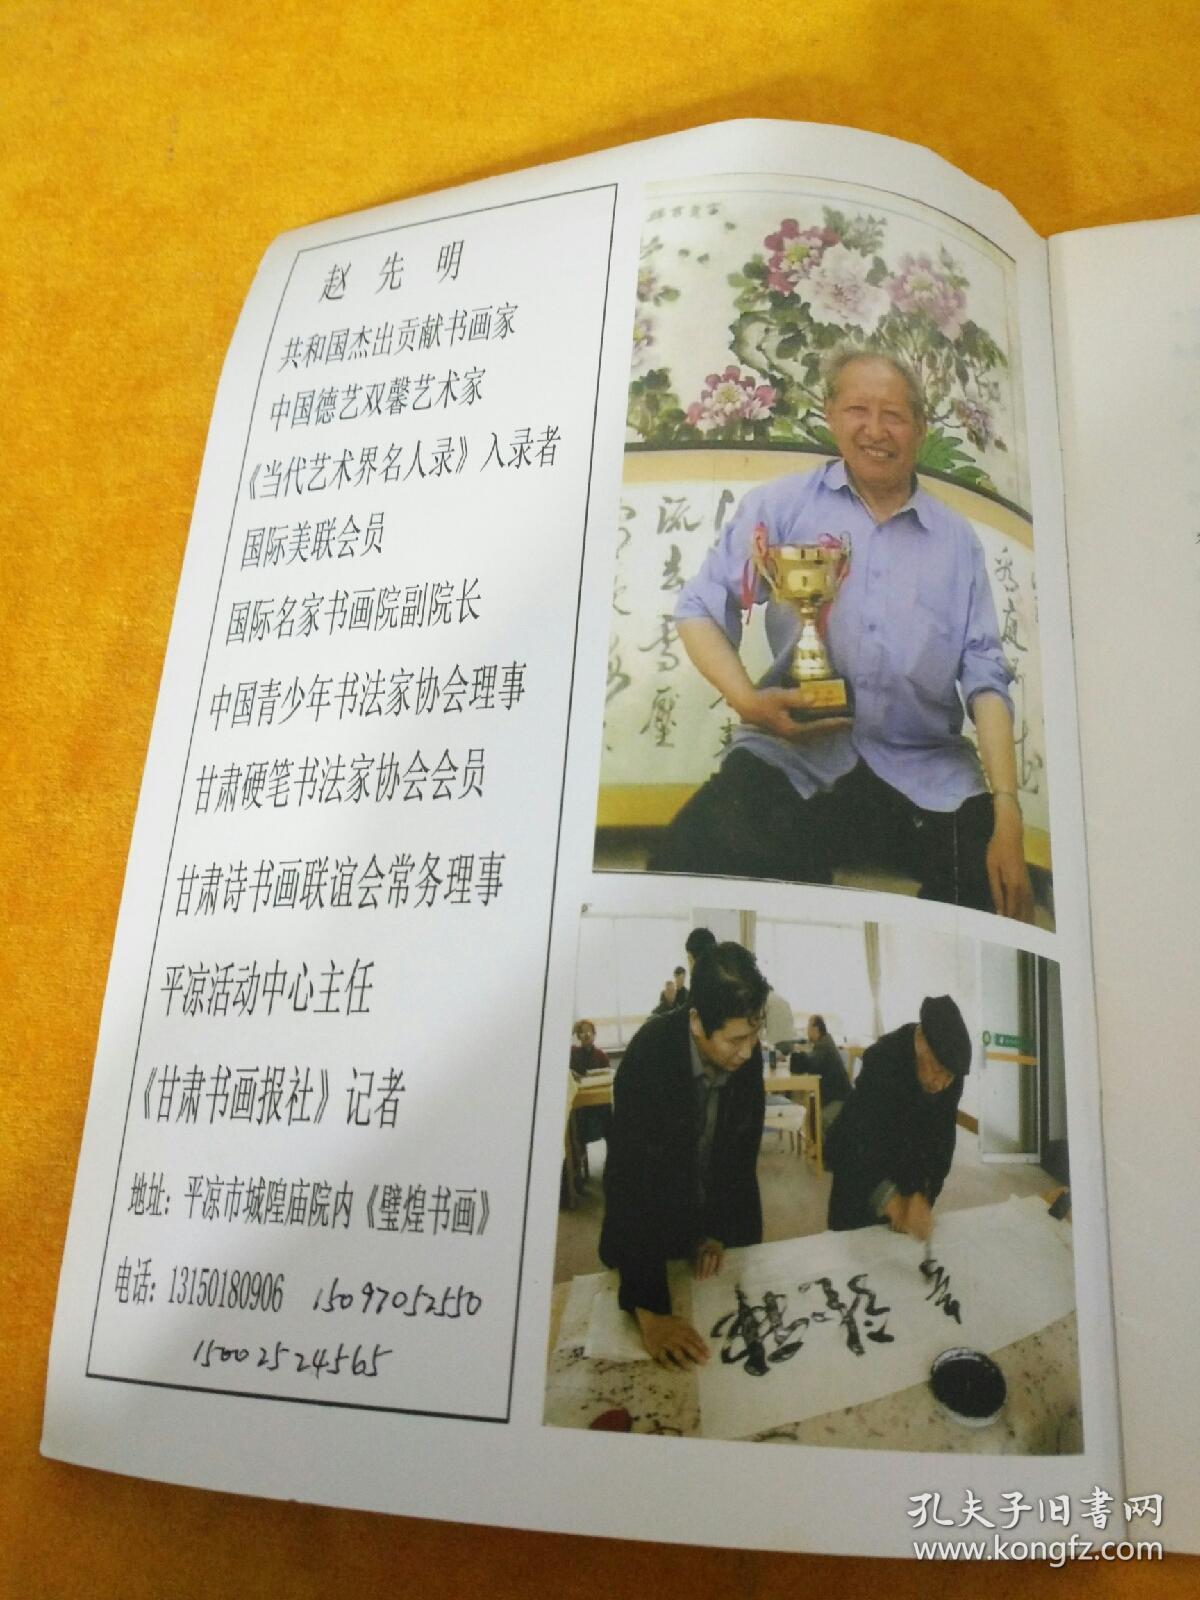 赵先明
共和国杰出贡献书画家
中国德艺双馨艺术家
《当代艺术界名人录》入录者
国际美联会员
国际名家书画院副院长
中国青少年书法家协会理事
甘肃硬笔书法家协会会员
甘肃诗书画联谊会常务理事
平凉活动中心主任
《甘肃书画报社》记者
地址：平凉市城隍庙院内《璧煌书画》
电话：13150180906 15097052550
15002524565
流去
孔夫子旧书网
www.kongfz.com